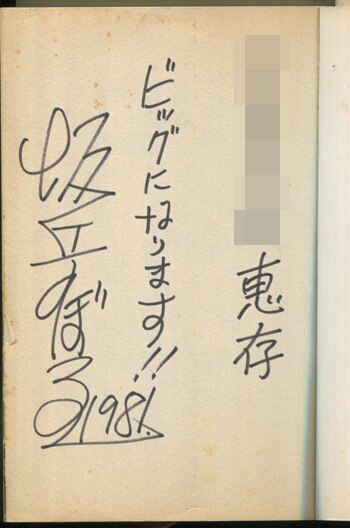 恵存
ビッグになります!!
坂丘のぼる
1981.